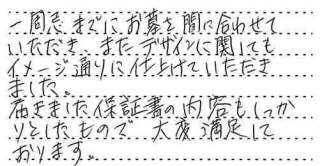 一周忌までにお墓を間に合わせて
いただき、またデザインに関しても
イメージ通りに仕上げていただき
ました。
届きました保証書の内容もしっか
りとしたもので、大変満足して
おります。